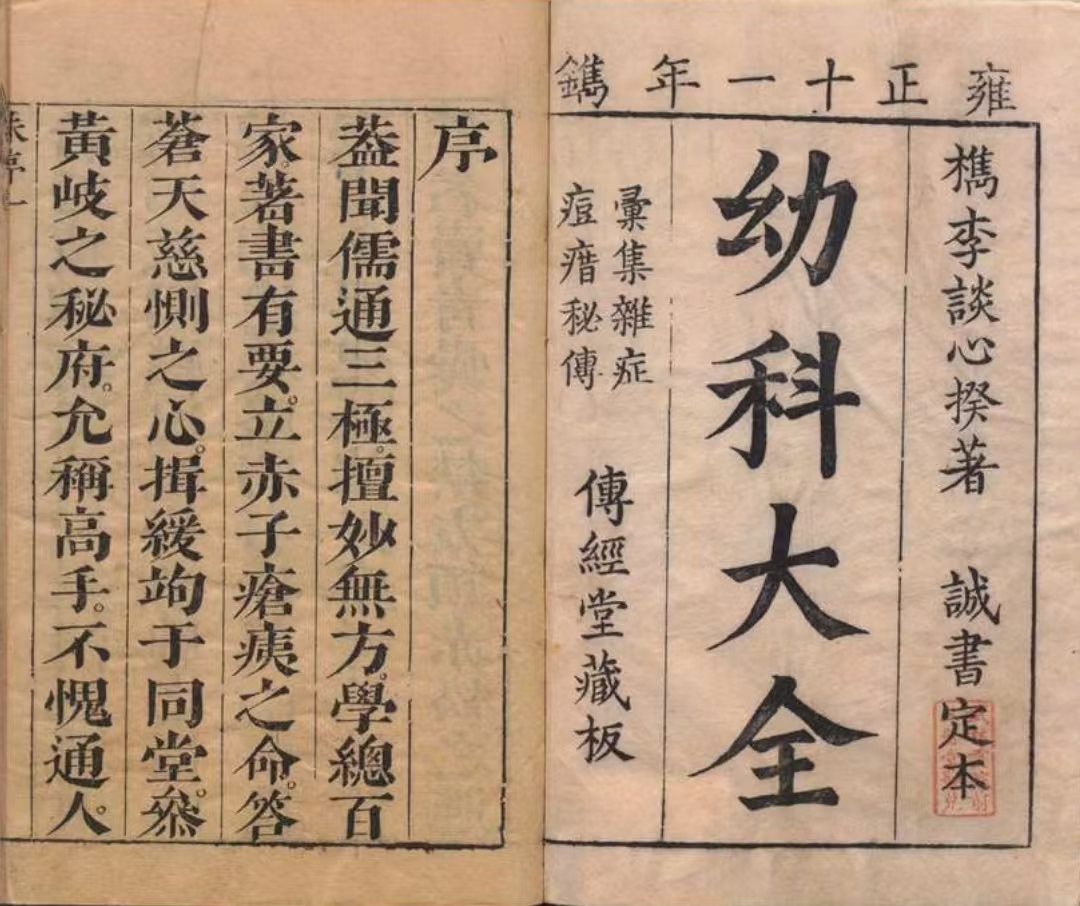 雍正十一年鐫
檇李談心揆著 誠書定本
幼科大全
彙集雜症
痘瘄秘傳
傳經堂藏板
序
葢聞儒通三極。擅妙無方。學總百
家。著書有要。立赤子瘡痍之命。答
蒼天慈惻之心。揖緩竘于同堂。叅
黃岐之秘府。允稱高手。不愧通人。
朱序一